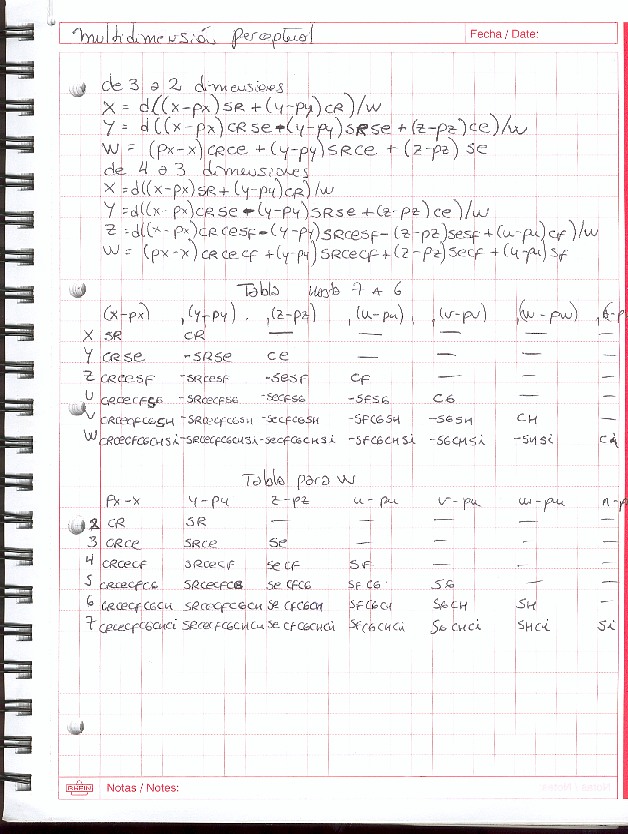 multidimensión perceptual
Fecha / Date:
de 3 a 2 dimensiones
X = d((x-px)SR + (y-py)CR)/W
Y = d((x-px)CRSe - (y-py)SRSe + (z-pz)Ce)/W
W = (px-x)CRCe + (y-py)SRCe + (z-pz) Se
de 4 a 3 dimensiones
X = d((x-px)SR + (y-py)CR)/W
Y = d((x-px)CRSe - (y-py)SRSe + (z-pz)Ce)/W
Z = d((x-px)CRCeSF - (y-py)SRCeSF - (z-pz)SeSF + (u-pu)CF)/W
W = (px-x)CRCeCF + (y-py)SRCeCF + (z-pz)SeCF + (u-pu)SF
Tabla hasta 7 a 6
(x-px) ,(y-py) . ,(z-pz) ,(u-pu) ,(v-pv) ,(w-pw)
X SR CR — — — — —
Y CRSe -SRSe Ce — — — —
Z CRCeSF -SRCeSF -SeSF CF — — —
U CRCeCFSG -SRCeCFSG -SeCFSG -SFSG CG — —
V CRCeCFCGSH -SRCeCFCGSH -SeCFCGSH -SFCGSH -SGSH CH —
W CRCeCFCGCHSi -SRCeCFCGCHSi -SeCFCGCHSi -SFCGCHSi -SGCHSi -SHSi Ci
Tabla para W
px-x y-py z-pz u-pu v-pu w-pu
2 CR SR — — — — —
3 CRCe SRCe Se — — - —
4 CRCeCF SRCeCF SeCF SF — - —
5 CRCeCFCG SRCeCFCG SeCFCG SFCG SG — —
6 CRCeCFCGCH SRCeCFCGCH SeCFCGCH SFCGCH SGCH SH —
7 CRCeCFCGCHCi SRCeCFCGCHCi SeCFCGCHCi SFCGCHCi SGCHCi SHCi Si
RHEIN
Notas / Notes: